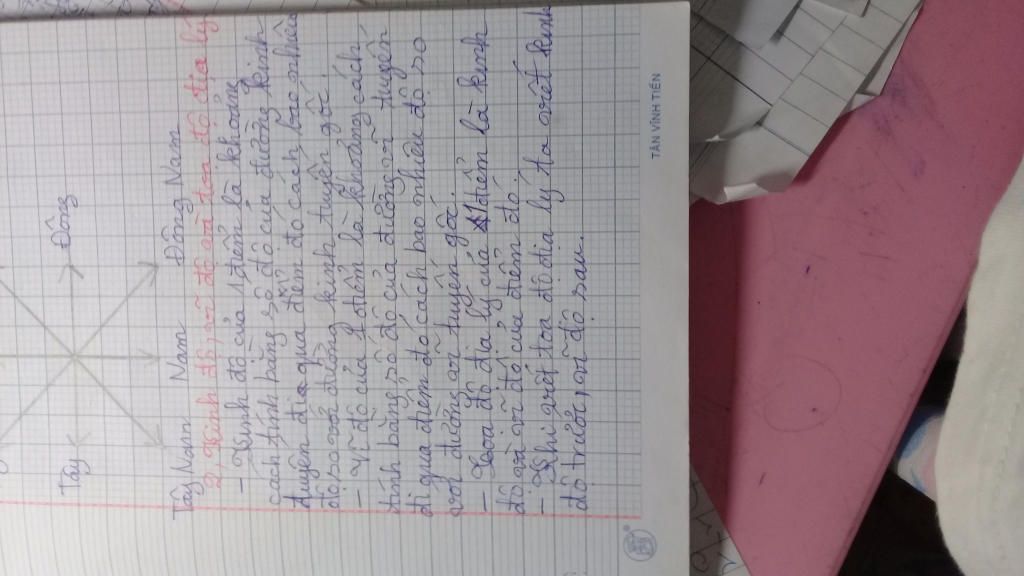 Tây
Đông
Tây Nam Nam Đông Nam
2, Kinh độ, vĩ độ và tọa độ địa lý
- Kinh độ của 1 điểm là khoảng
cách tính bằng số độ của đường kinh
tuyến đi qua điểm đó cách bao nhiêu
độ so với đường kinh tuyến gốc.
- Vĩ độ của 1 điểm là khoảng cách
tính bằng số độ của đường vĩ tuyến
đi qua điểm đó cách bao nhiêu độ so
với đường vĩ tuyến gốc.
- Tọa độ địa lý của 1 điểm là kinh
độ và vĩ độ của điểm đó.
- Khi viết tọa độ địa lý ta viết kinh
độ trước, vĩ độ sau.
TÂN VĨNH TIẾN